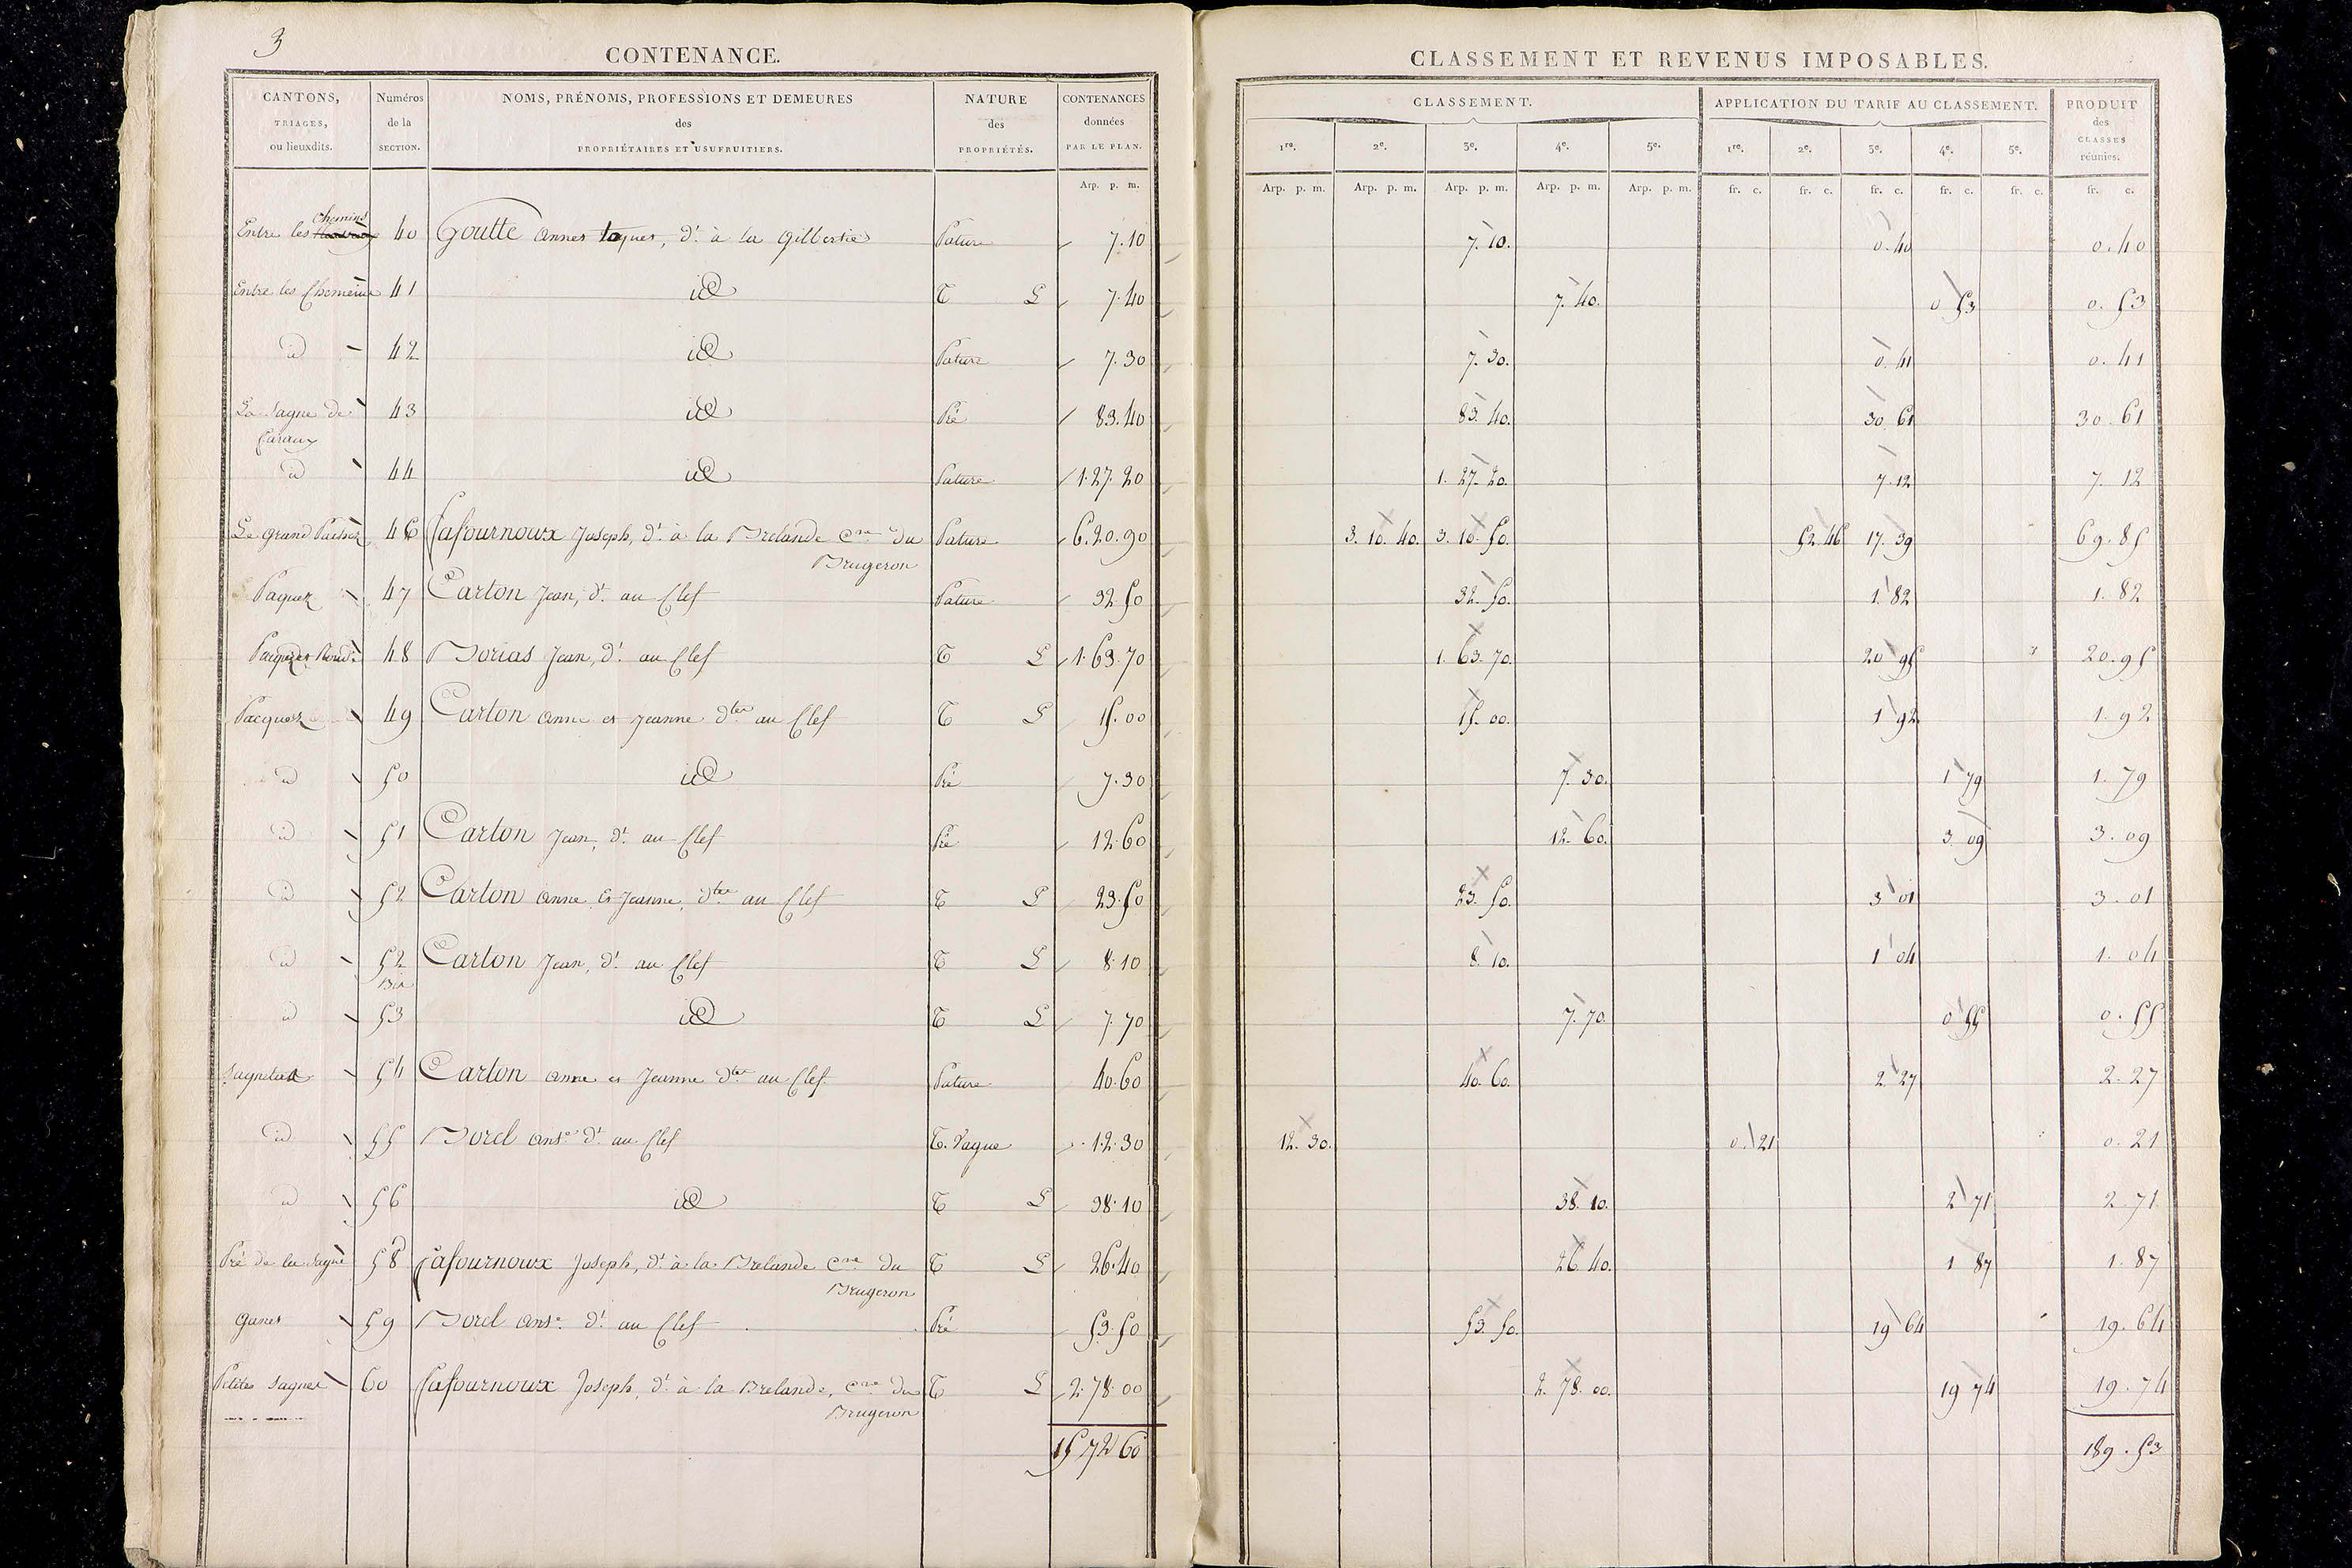 3
CONTENANCE.
CANTONS, TRIAGES, ou lieuxdits. | Numéros de la SECTION. | NOMS, PRÉNOMS, PROFESSIONS ET DEMEURES des PROPRIÉTAIRES ET USUFRUITIERS. | NATURE des PROPRIÉTÉS. | CONTENANCES données PAR LE PLAN.
Arp. p. m.
CLASSEMENT ET REVENUS IMPOSABLES.
CLASSEMENT. | APPLICATION DU TARIF AU CLASSEMENT. | PRODUIT des CLASSES réunies.
1re. 2e. 3e. 4e. 5e. | 1re. 2e. 3e. 4e. 5e.
Arp. p. m. Arp. p. m. Arp. p. m. Arp. p. m. Arp. p. m. | fr. c. fr. c. fr. c. fr. c. fr. c. | fr. c.
Entre les chemins 40 Goutte annet, dt. à la Gilbertie Pature 7.10 | 7.10. | 0.40 | 0.40
Entre les Chemins 41 id T L 7.40 | 7.40. | 0 53 | 0.53
id 42 id Pature 7.30 | 7.30. | 0.41 | 0.41
La Sagne de 43 id Pré 83.40 | 83.40. | 30 61 | 30.61
id 44 id Pature 1.27.20 | 1.27.20. | 7.12 | 7.12
Le Grand 46 Lafournoux Joseph, dt. à la Brelande cne du Pature 6.20.90 | 3.10.40. 3.10.50. | 52.46 17.39 | 69.85
Brugeron
Paquer 47 Carton Jean, dt. au Clef Pature 32 50 | 32.50. | 1.82 | 1.82
48 Borias Jean, dt. au Clef T L 1.63.70 | 1.63.70. | 20 95 | 20.95
Pacquer 49 Carton anne et Jeanne dtes au Clef T L 15.00 | 15.00. | 1 92 | 1.92
id 50 id Pré 7.30 | 7.30. | 1 79 | 1.79
id 51 Carton Jean, dt. au Clef Pré 12.60 | 12.60. | 3 09 | 3.09
id 52 Carton anne et Jeanne, dtes au Clef T L 23.50 | 23.50. | 3 01 | 3.01
id 52 Carton Jean, dt. au Clef T L 8.10 | 8.10. | 1 04 | 1.04
Bis
id 53 id T L 7.70 | 7.70. | 0 55 | 0.55
54 Carton anne et Jeanne dtes au Clef Pature 40.60 | 40.60. | 2.27 | 2.27
id 55 Borel anse dt. au Clef T. Vague 12.30 | 12.30. | 0.21 | 0.21
id 56 id T L 38.10 | 38.10. | 2 71 | 2.71
Pré de la Sagne 58 Lafournoux Joseph, dt. à la Brelande cne du T L 26.40 | 26.40. | 1 87 | 1.87
Brugeron
59 Borel anse. dt. au Clef Pré 53.50 | 53.50. | 19 64 | 19.64
Petites Sagnes 60 Lafournoux Joseph, dt. à la Brelande, cne du T L 2.78.00 | 2.78.00. | 19 74 | 19.74
Brugeron
15 72 60 | 189.53